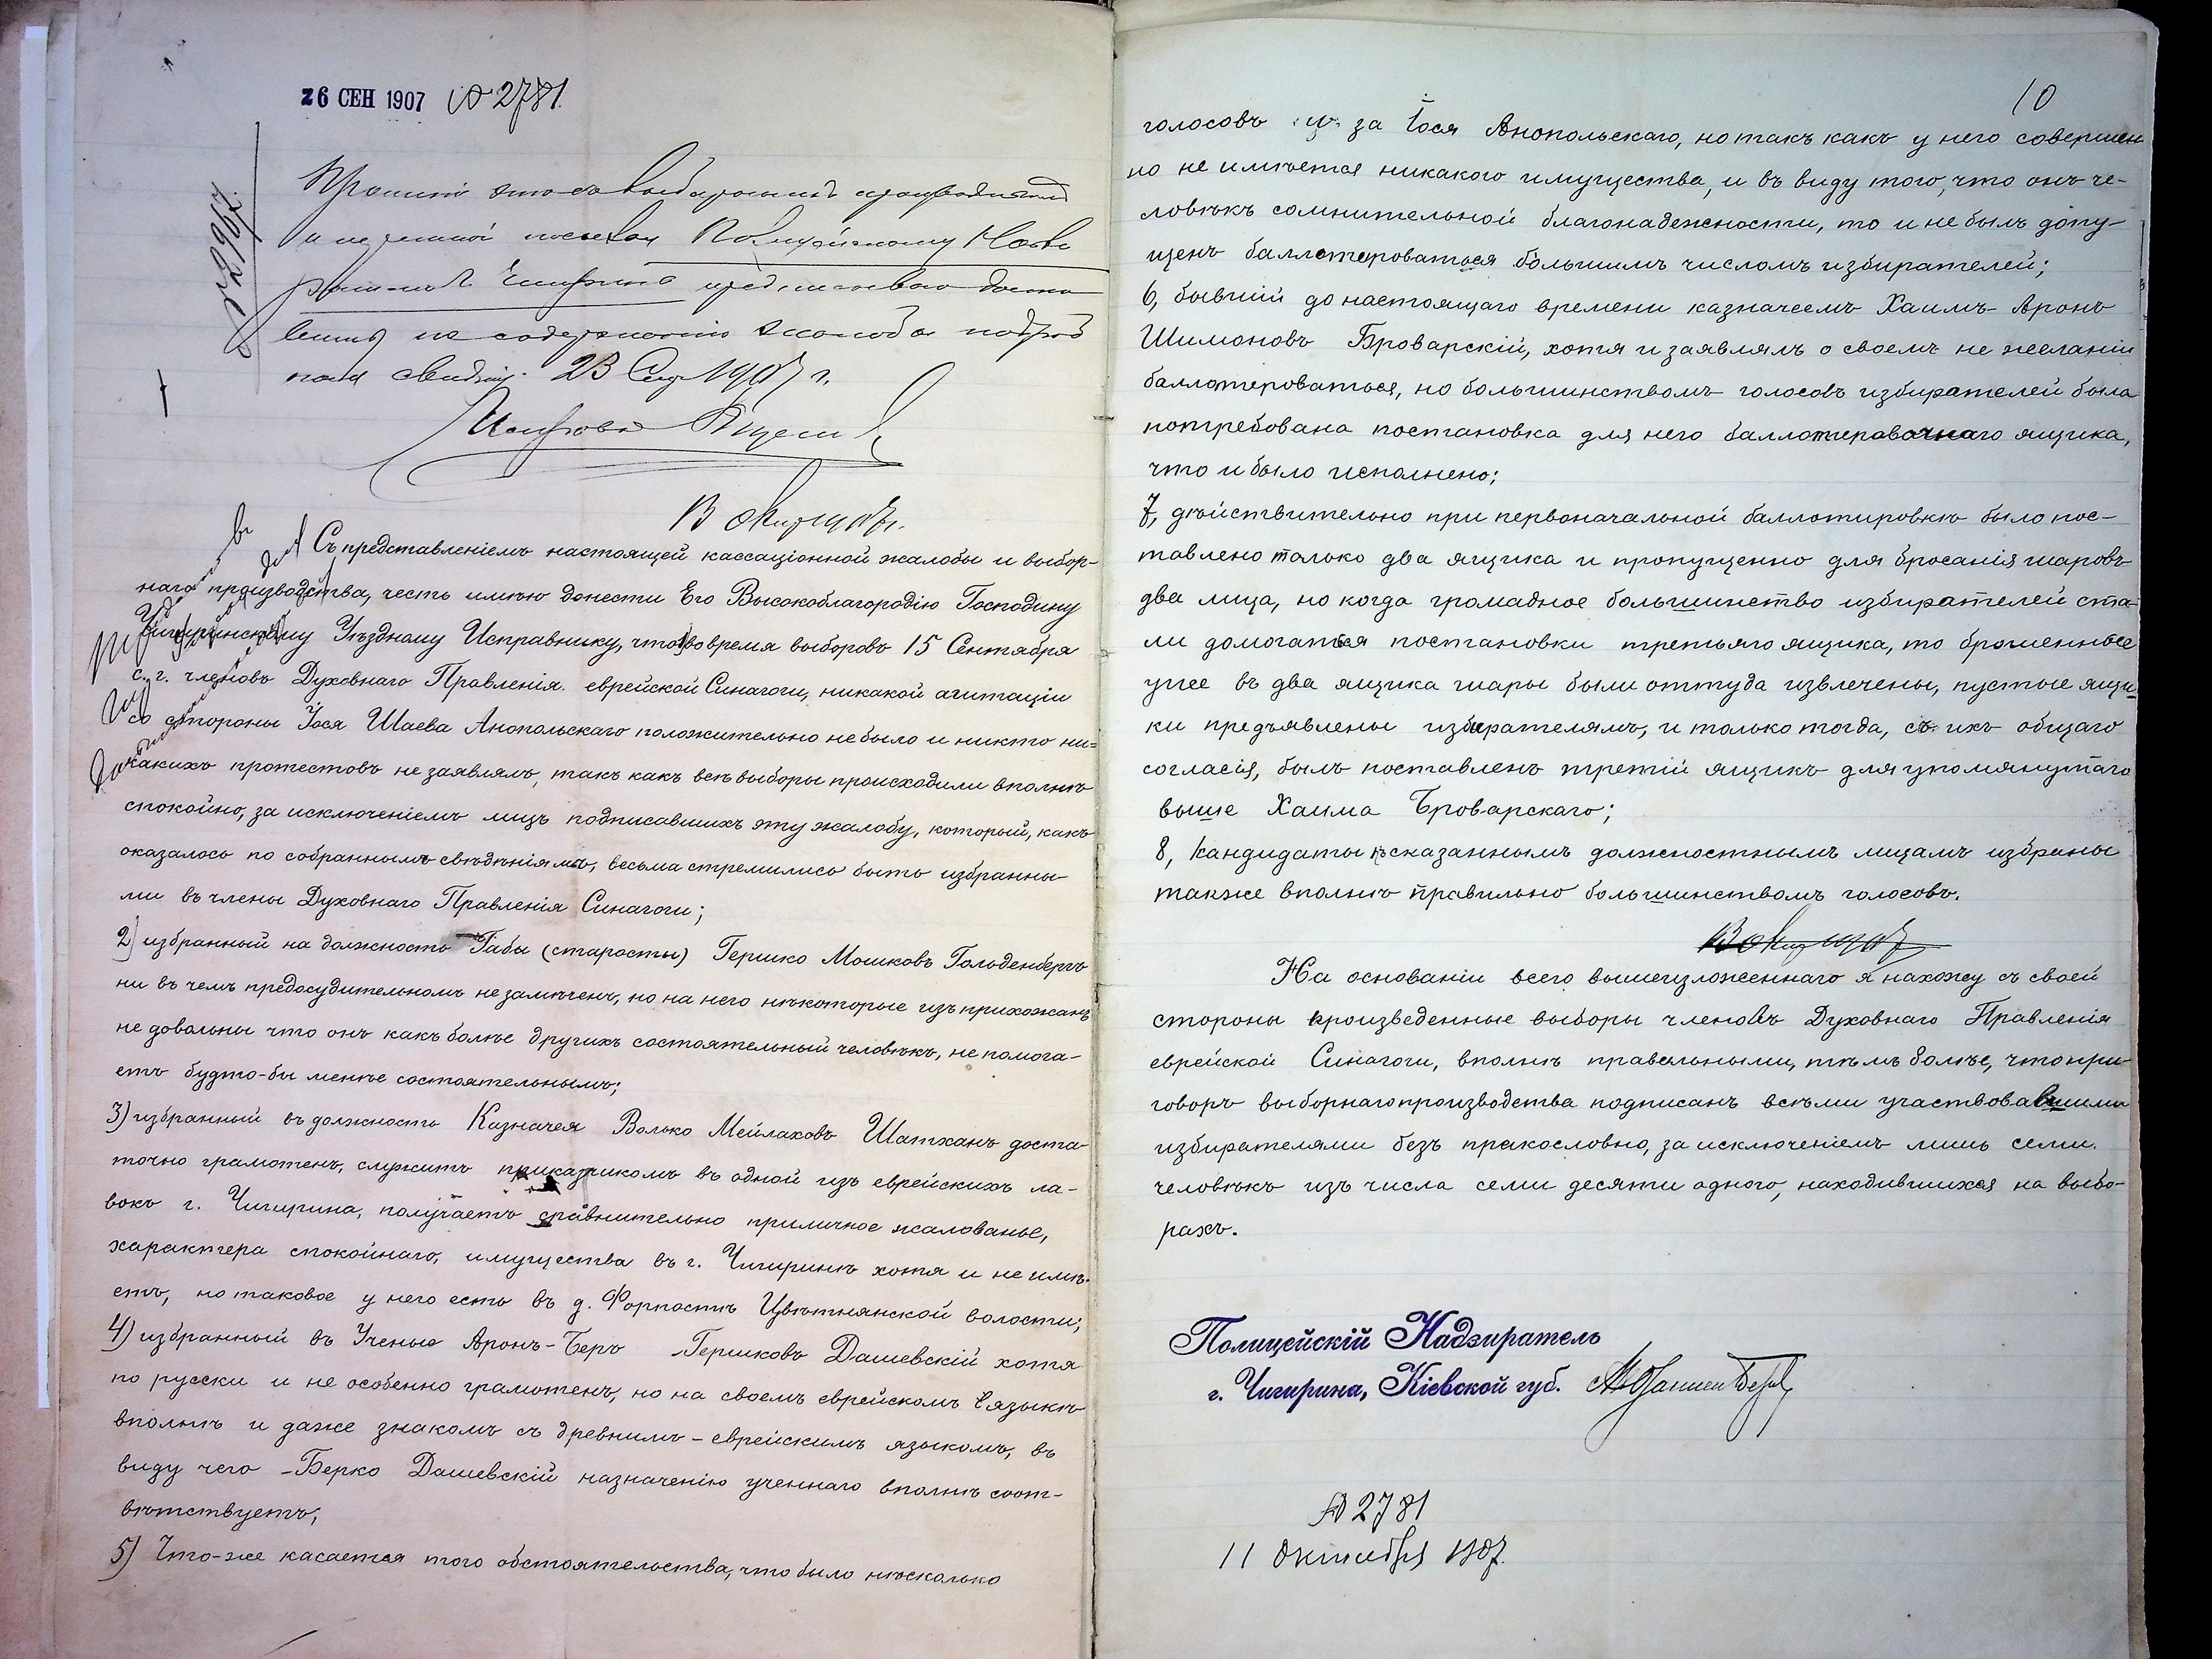 26 СЕН 1907 № 2781.
№ 2967.
Прошеніе это съ выборнымъ производствомъ
Полицейскому Надзи
рателю г. Чигирина предписываю доста
вить по содержанію жалобы подроб
ныя свѣдѣнія. 23 Сент 1907 г.
Исправникъ
В Окт 1907 г.
Съ представленіемъ настоящей кассаціонной жалобы и выбор-
наго производства, честь имѣю донести Его Высокоблагородію Господину
Чигиринскому Уѣздному Исправнику, что 1) во время выборовъ 15 Сентября
с. г. членовъ Духовнаго Правленія еврейской Синагоги, никакой агитаціи
со стороны Іося Шаева Анопольскаго положительно не было и никто ни-
какихъ протестовъ не заявлялъ, такъ какъ всѣ выборы происходили вполнѣ
спокойно, за исключеніемъ лицъ подписавшихъ эту жалобу, который, какъ
оказалось по собраннымъ свѣдѣніямъ, весьма стремились быть избранны-
ми въ члены Духовнаго Правленія Синагоги;
2) избранный на должность Габы (старосты) Гершко Мошковъ Гольденбергъ
ни въ чемъ предосудительномъ не замѣченъ, но на него нѣкоторые изъ прихожанъ
не довольны что онъ какъ болѣе другихъ состоятельный человѣкъ, не помога-
етъ будто-бы менѣе состоятельнымъ;
3) избранный въ должность Казначея Волько Мейлаховъ Шатханъ доста-
точно грамотенъ, служитъ приказчикомъ въ одной изъ еврейскихъ ла-
вокъ г. Чигирина, получаетъ сравнительно приличное жалованье,
характера спокойнаго, имущества въ г. Чигиринѣ хотя и не имѣ-
етъ, но таковое у него есть въ д. Форпостѣ Цвѣтнянской волости;
4) избранный въ Ученые Аронъ-Беръ Гершковъ Дашевскій хотя
по русски и не особенно грамотенъ, но на своемъ еврейскомъ языкѣ
вполнѣ и даже знакомъ съ древнимъ-еврейскимъ языкомъ, въ
виду чего Берко Дашевскій назначенію ученнаго вполнѣ соот-
вѣтствуетъ;
5) Что-же касается того обстоятельства, что было нѣсколько
10
голосовъ за Іося Анопольскаго, но такъ какъ у него совершен
но не имѣется никакого имущества, и въ виду того, что онъ че-
ловѣкъ сомнительной благонадежности, то и не былъ допу-
щенъ баллотироваться большимъ числомъ избирателей;
6, бывшій до настоящаго времени казначеемъ Хаимъ-Аронъ
Шимоновъ Броварскій, хотя и заявлялъ о своемъ не желаніи
баллотероваться, но большинствомъ голосовъ избирателей была
потребована постановка для него баллотеровочнаго ящика,
что и было исполнено;
7, дѣйствительно при первоначальной баллотировкѣ было пос-
тавлено только два ящика и пропущенно для бросанія шаровъ
два лица, но когда громадное большинство избирателей ста-
ли домогаться постановки третьяго ящика, то брошенные
уже въ два ящика шары были оттуда извлечены, пустые ящи-
ки предъявлены избирателямъ, и только тогда, съ ихъ общаго
согласія, былъ поставленъ третій ящикъ для упомянутаго
выше Хаима Броварскаго;
8, Кандидаты къ сказаннымъ должностнымъ лицамъ избраны
также вполнѣ правильно большинствомъ голосовъ.
В Окт 1907
На основаніи всего вышеизложеннаго я нахожу съ своей
стороны произведенные выборы членовъ Духовнаго Правленія
еврейской Синагоги, вполнѣ правельными, тѣмъ болѣе, что при-
говоръ выборнаго производства подписанъ всѣми участвовавшими
избирателями безъ прикословно, за исключеніемъ лишь семи
человѣкъ изъ числа семи десяти одного, находившихся на выбо-
рахъ.
Полицейскій Надзиратель
г. Чигирина, Кіевской губ.
№ 2781
11 Октября 1907.